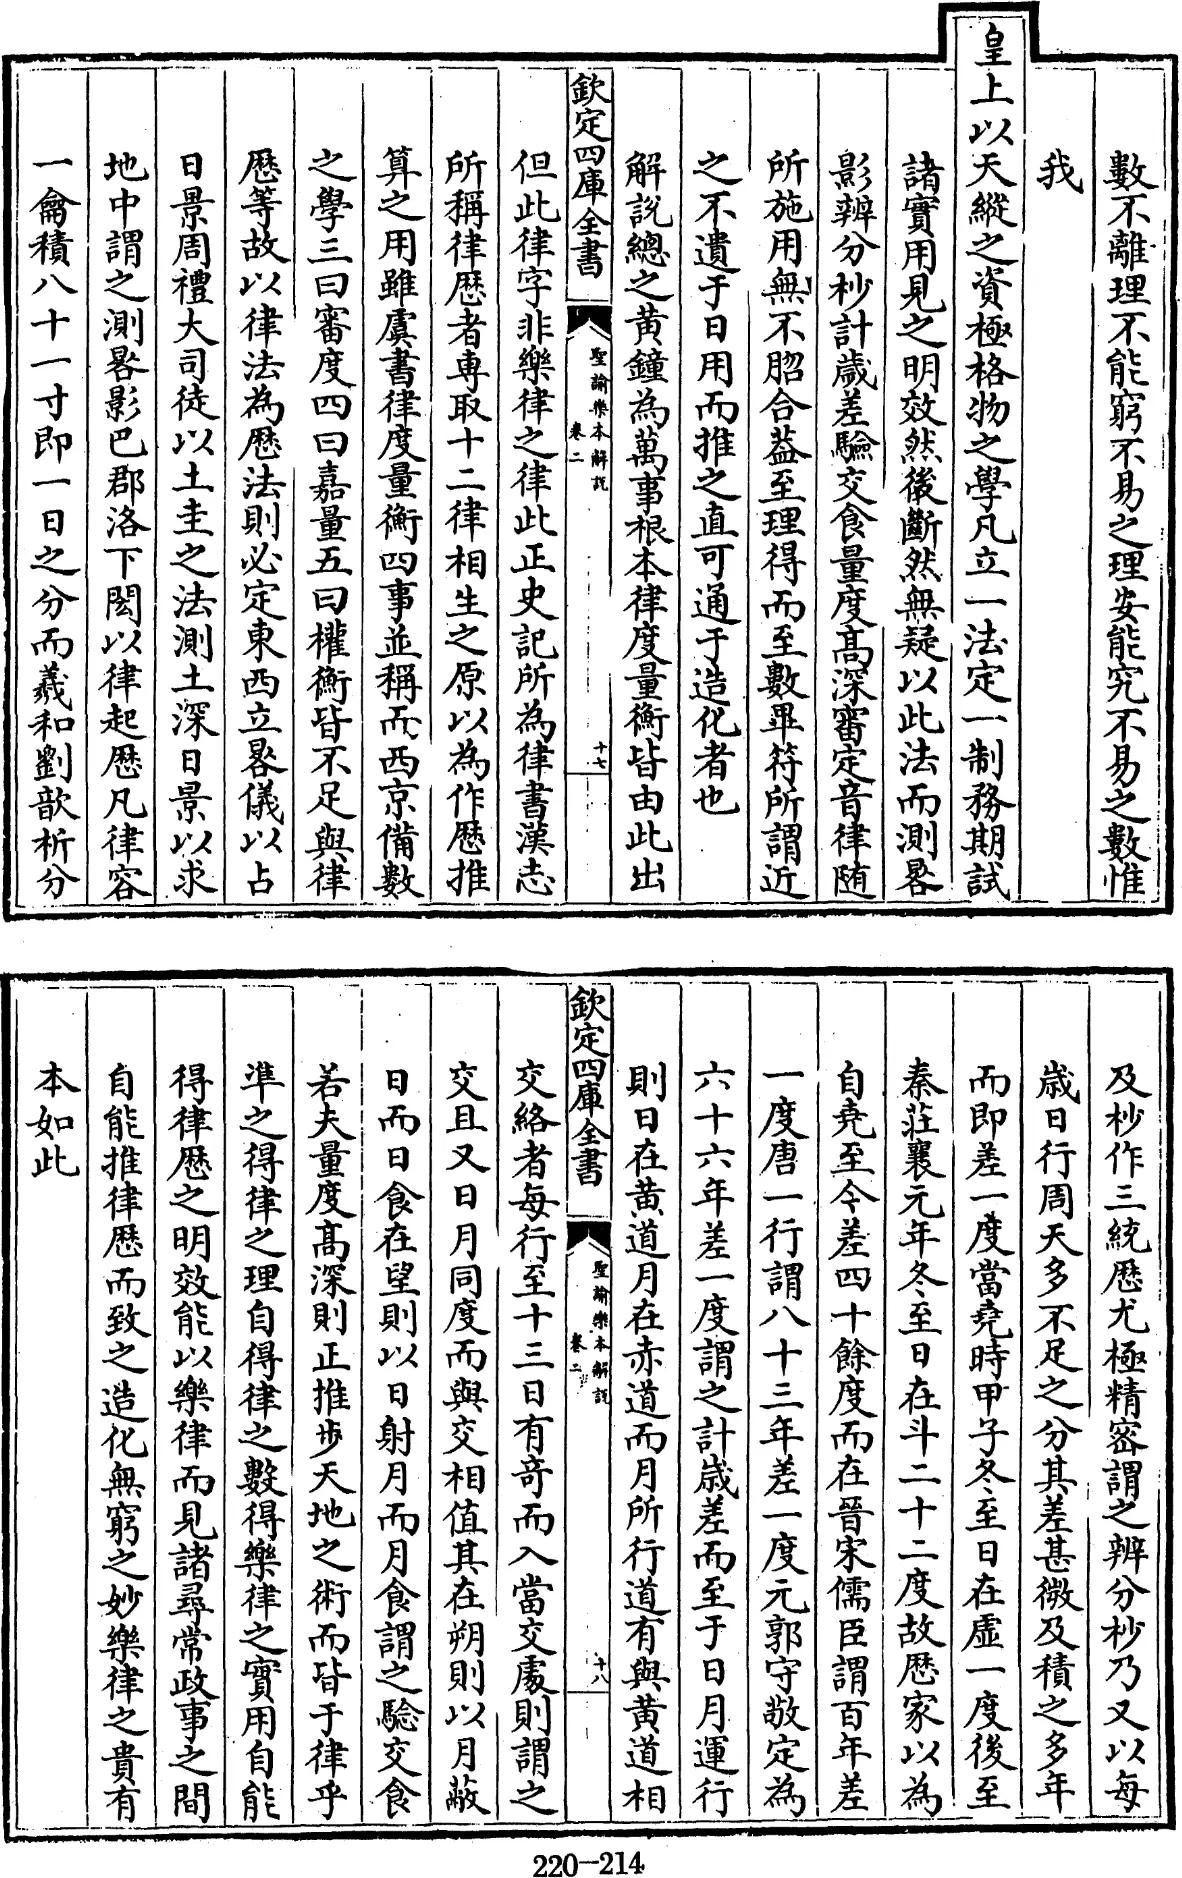 數不離理不能窮不易之理安能究不易之數惟
我
皇上以天縱之資極格物之學凡立一法定一制務期試
諸實用見之明效然後斷然無疑以此法而測晷
影辨分杪計歲差驗交食量度髙深審定音律随
所施用無不脗合葢至理得而至數畢符所謂近
之不遺于日用而推之直可通于造化者也
解説總之黄鐘為萬事根本律度量衡皆由此出
欽定四庫全書
聖諭樂本解説
卷二
十七
但此律字非樂律之律此正史記所為律書漢志
所稱律厯者専取十二律相生之原以為作厯推
算之用雖虞書律度量衡四事並稱而西京備數
之學三曰審度四曰嘉量五曰權衡皆不足與律
厯等故以律法為厯法則必定東西立晷儀以占
日景周禮大司徒以土圭之法測土深日景以求
地中謂之測晷影巴郡洛下閎以律起厯凡律容
一龠積八十一寸即一日之分而羲和劉歆析分
及杪作三統厯尤極精宻謂之辨分杪乃又以每
歲日行周天多不足之分其差甚微及積之多年
而即差一度當堯時甲子冬至日在虛一度後至
秦莊襄元年冬至日在斗二十二度故厯家以為
自堯至今差四十餘度而在晉宋儒臣謂百年差
一度唐一行謂八十三年差一度元郭守敬定為
六十六年差一度謂之計歲差而至于日月運行
則日在黄道月在赤道而月所行道有與黄道相
欽定四庫全書
聖諭樂本解説
卷二
十八
交絡者每行至十三日有竒而入當交處則謂之
交且又日月同度而與交相值其在朔則以月蔽
日而日食在望則以日射月而月食謂之驗交食
若夫量度髙深則正推步天地之術而皆于律乎
準之得律之理自得律之數得樂律之實用自能
得律厯之明效能以樂律而見諸尋常政事之間
自能推律厯而致之造化無窮之妙樂律之貴有
本如此
220-214